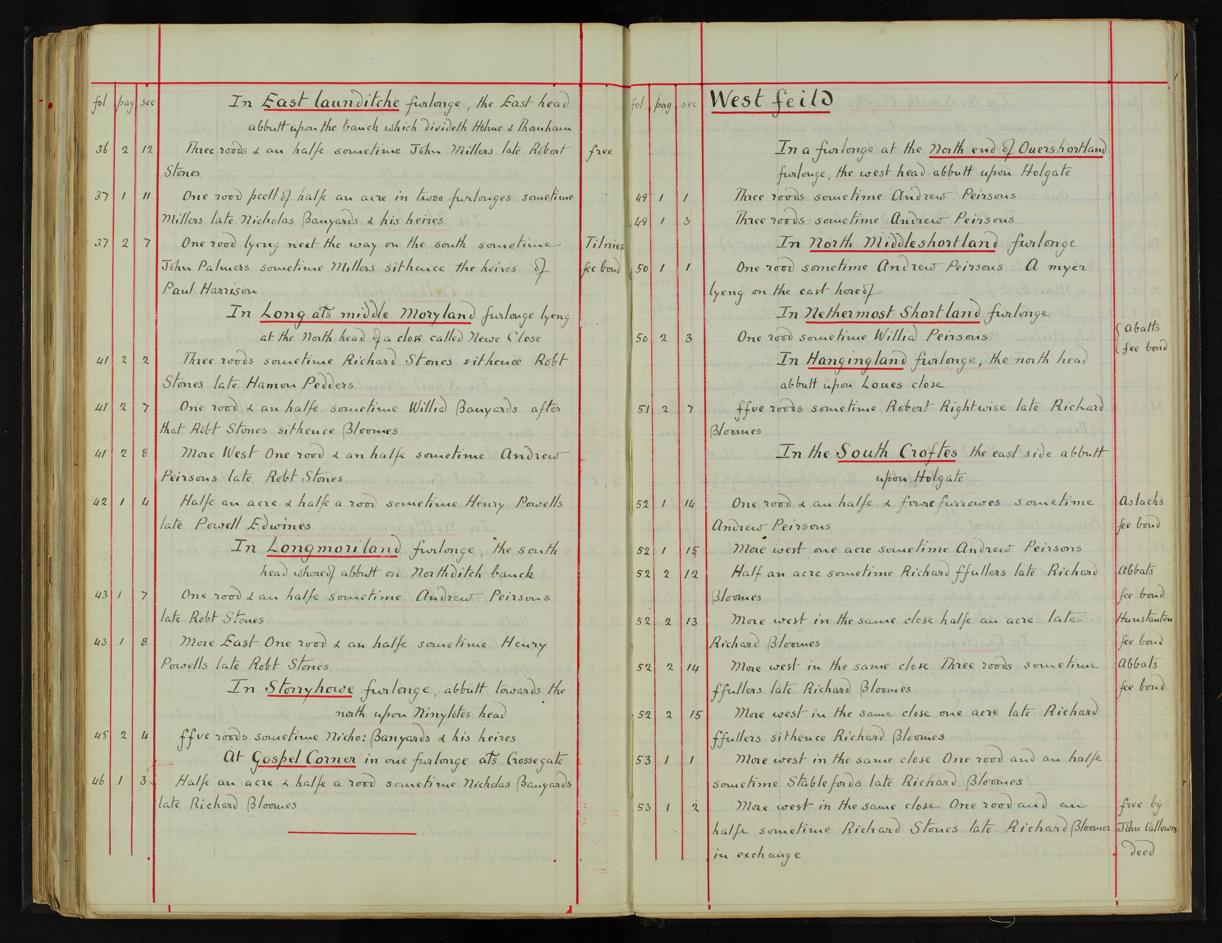 fol pag sec In East launditche furlonge, the East head
abbutt upon the banck which divideth Holme & Thornham
36 2 12 Three roods & an halfe sometime John Millers late Robert free
Stones
37 1 11 One rood pcell of halfe an acre in twoo furlonges sometime
Millers late Nicholas Banyards & his heires
37 2 7 One rood lyeng next the way on the south sometime Tilnies
John Palmers sometime Millers sithence the heires of fee bond
Paul Harrison
In Long ats middle Moryland furlonge lyeng
at the North head of a close called Newe Close
41 2 2 Three roods sometime Richard Stones sithence Robt
Stones late Hamon Pedders
41 2 7 One rood & an halfe sometime Willia Banyards after
that Robt Stones sithence Bloomes
41 2 8 More West One rood & an halfe sometime Andrew
Peirsons late Robt Stones
42 1 4 Halfe an acre & halfe a rood sometime Henry Powells
late Powell Edwines
In Longmoriland furlonge, the south
head whereof abbutt on Northditch banck
43 1 7 One rood & an halfe sometime Andrew Peirsons
late Robt Stones
43 1 8 More East One rood & an halfe sometime Henry
Powells late Robt Stones
In Stonyhowe furlonge, abbutt towards the
north upon Ninylotes head
45 2 4 ffve roods sometime Nicho: Banyards & his heires
At Gospel Corner in one furlonge ats Crossegate
46 1 3 Halfe an acre & halfe a rood sometime Nicholas Banyards
late Richard Bloomes
fol pag sec West feild
In a furlonge at the North end of Ouershortland
furlonge, the west head abbutt upon Holgate
49 1 1 Three roods sometime Andrew Peirsons
49 1 3 Three roods sometime Andrew Peirsons
In North Middleshortland furlonge
50 1 1 One rood sometime Andrew Peirsons A myer
lyeng on the east hereof
In Nethermost Shortland furlonge
50 2 3 One rood sometime Willia Peirsons { Abatts
fee bond
In Hangingland furlonge, the north head
abbutt upon Loues close
51 2 7 ffve roods sometime Robert Rightwise late Richard
Bloomes
In the South Croftes the east side abbutt
upon Holgate
52 1 14 One rood & an halfe & fowre furrowes sometime Aslacks
Andrew Peirsons fee bond
52 1 15 More west one acre sometime Andrew Peirsons
52 2 12 Half an acre sometime Richard ffullers late Richard Abbats
Bloomes fee bond
52 2 13 More west in the same close halfe an acre late Hunstanton
Richard Bloomes fee bond
52 2 14 More west in the same close Three roods sometime Abbats
ffullers late Richard Bloomes fee bond
52 2 15 More west in the same close one acre late Richard
ffullers sithence Richard Bloomes
53 1 1 More west in the same close One rood and an halfe
sometime Stablefords late Richard Bloomes
53 1 2 More west in the same close One rood and an free by
halfe sometime Richard Stones late Richard Bloomes John Callowes
in exchange deed